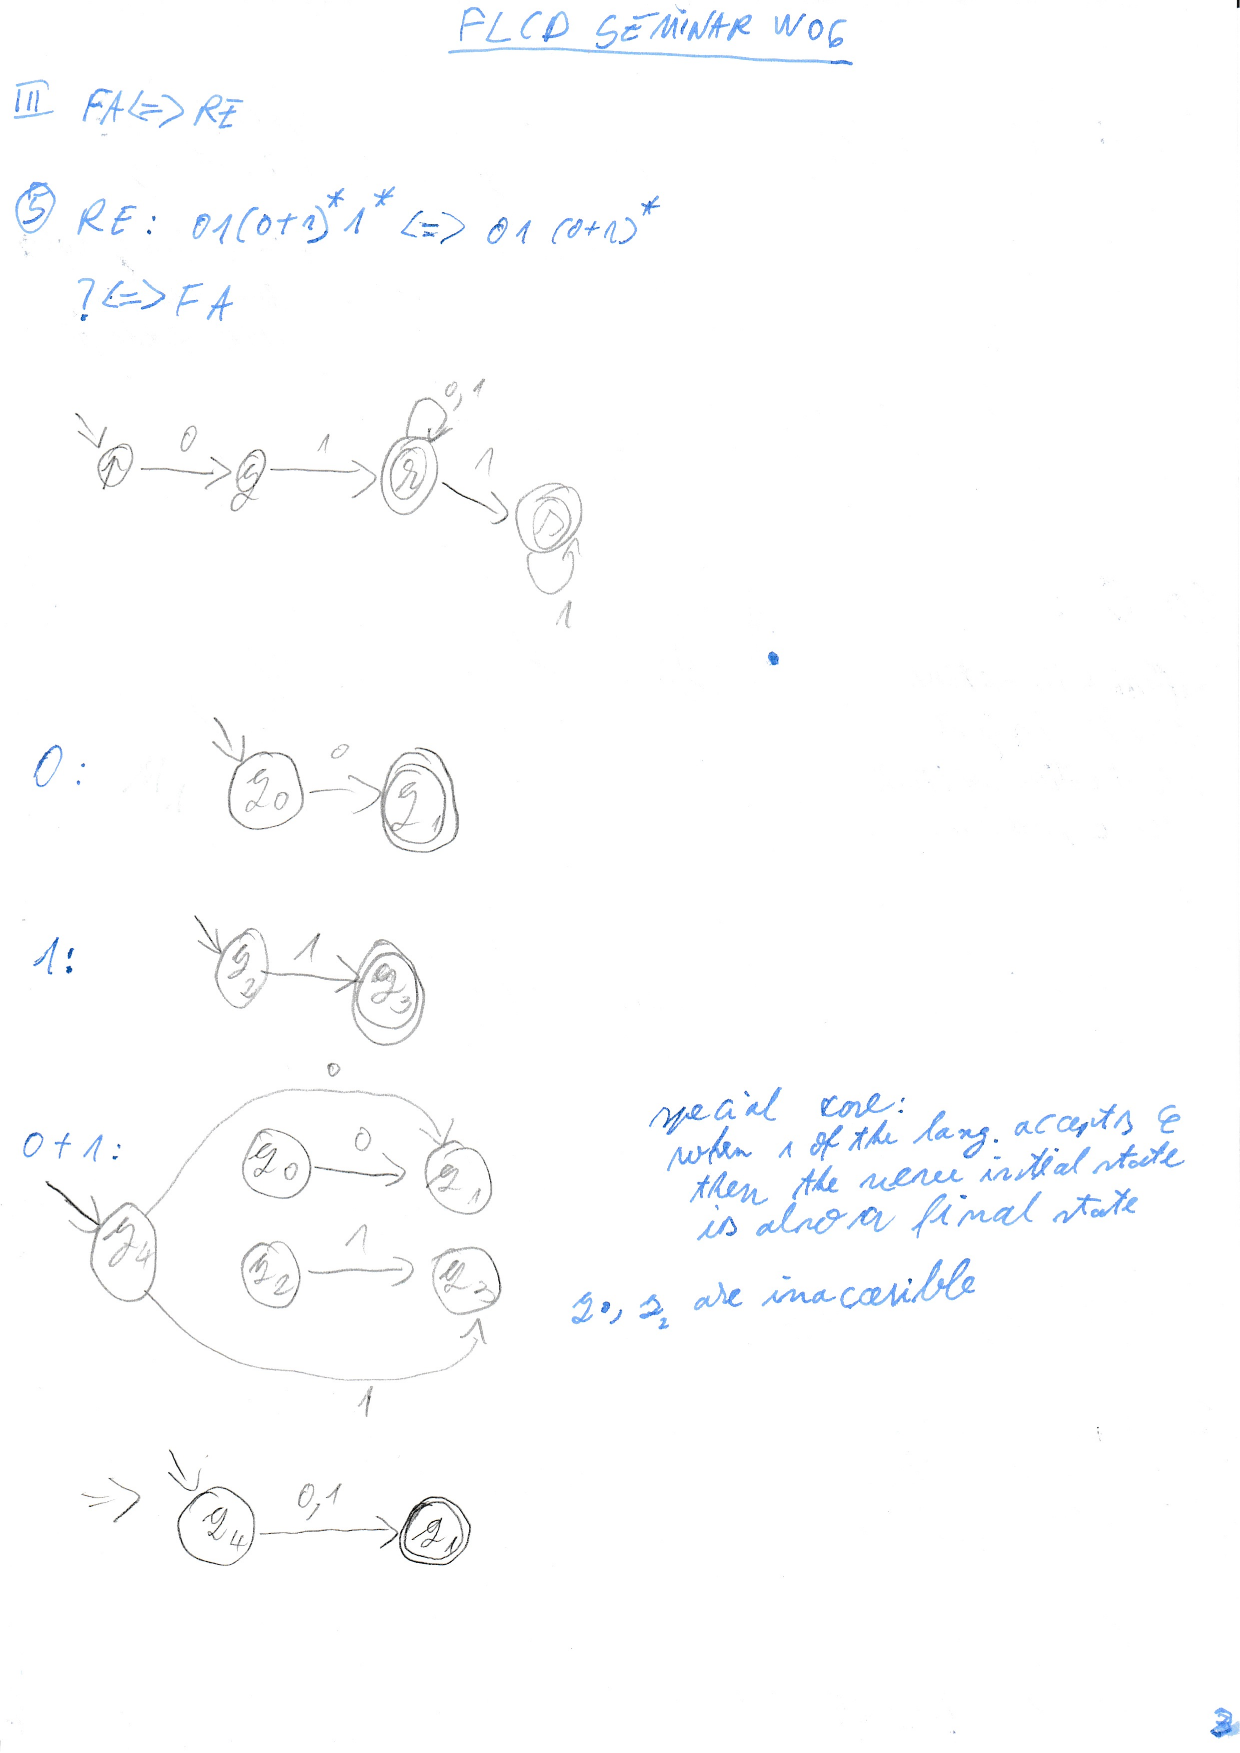 FLCD SEMINAR W06
III FA<=>RE
5 RE: 01(0+1)*1* <=> 01(0+1)*
? <=> FA
0,1
p 0 q 1 r 1 s
1
0: q0 0 q1
1: q2 1 q3
0
0+1: q0 0 q1
q4 q2 1 q3
1
special case:
when 1 of the lang. accepts ε
then the new initial state
is also a final state
q0, q2 are inaccesible
=> q4 0,1 q1
3